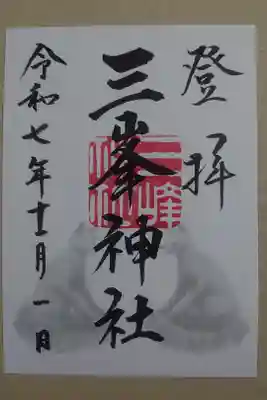 登拝
三峯神社
令和七年十二月一日